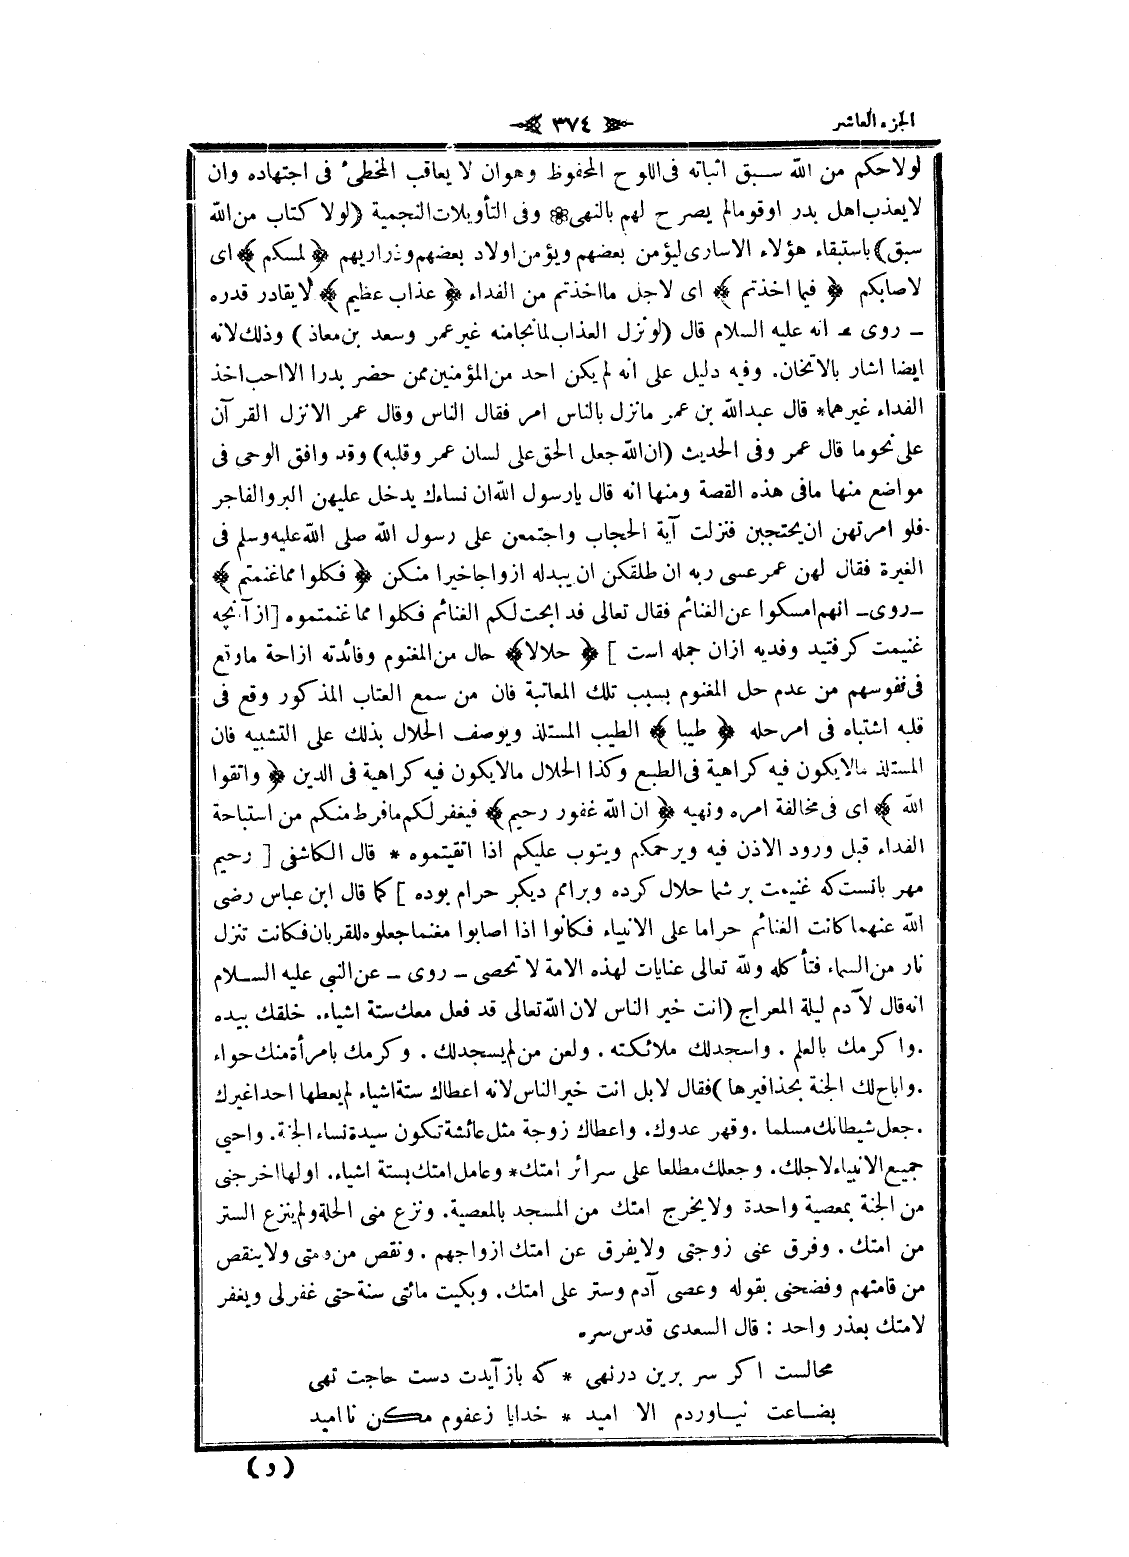 الجزء العاشر
﴿ ٣٧٤ ﴾
لولا حكم من الله سبق اثباته فى اللوح المحفوظ وهو ان لا يعاقب المخطئ فى اجتهاده وان
لا يعذب اهل بدر او قوما لم يصرح لهم بالنهى۞ وفى التأويلات النجمية (لولا كتاب من الله
سبق) باستبقاء هؤلاء الاسارى ليؤمن بعضهم ويؤمن اولاد بعضهم وذراريهم ﴿ لمسكم ﴾ اى
لاصابكم ﴿ فيما اخذتم ﴾ اى لاجل ما اخذتم من الفداء ﴿ عذاب عظيم ﴾ لا يقادر قدره
ـ روى ـ انه عليه السلام قال (لو نزل العذاب لما نجا منه غير عمر وسعد بن معاذ ) وذلك لانه
ايضا اشار بالاثخان. وفيه دليل على انه لم يكن احد من المؤمنين ممن حضر بدرا الا احب اخذ
الفداء غيرهما* قال عبدالله بن عمر ما نزل بالناس امر فقال الناس وقال عمر الا نزل القرآن
على نحو ما قال عمر وفى الحديث (ان الله جعل الحق على لسان عمر وقلبه) وقد وافق الوحى فى
مواضع منها ما فى هذه القصة ومنها انه قال يا رسول الله ان نساءك يدخل عليهن البر والفاجر
فلو امرتهن ان يحتجبن فنزلت آية الحجاب واجتمعن على رسول الله صلى الله عليه وسلم فى
الغيرة فقال لهن عمر عسى ربه ان طلقكن ان يبدله ازواجا خيرا منكن ﴿ فكلوا مما غنمتم ﴾
ـ روى ـ انهم امسكوا عن الغنائم فقال تعالى قد ابحت لكم الغنائم فكلوا مما غنمتموه [از آنچه
غنيمت كرفتيد وفديه ازان جمله است ] ﴿ حلالا﴾ حال من المغنوم وفائدته ازاحة ما وقع
فى نفوسهم من عدم حل المغنوم بسبب تلك المعاتبة فان من سمع العتاب المذكور وقع فى
قلبه اشتباه فى امر حله ﴿ طيبا ﴾ الطيب المستلذ ويوصف الحلال بذلك على التشبيه فان
المستلذ مالا يكون فيه كراهية فى الطبع وكذا الحلال مالا يكون فيه كراهية فى الدين ﴿ واتقوا
الله ﴾ اى فى مخالفة امره ونهيه ﴿ ان الله غفور رحيم ﴾ فيغفر لكم ما فرط منكم من استباحة
الفداء قبل ورود الاذن فيه ويرحمكم ويتوب عليكم اذا اتقيتموه * قال الكاشفى [ رحيم
مهربانست كه غنيمت بر شما حلال كرده وبرامم ديكر حرام بوده ] كما قال ابن عباس رضى
الله عنهما كانت الغنائم حراما على الانبياء فكانوا اذا اصابوا مغنما جعلوه للقربان فكانت تنزل
نار من السماء فتأكله ولله تعالى عنايات لهذه الامة لا تحصى ـ روى ـ عن النبى عليه السلام
انه قال لآدم ليلة المعراج (انت خير الناس لان الله تعالى قد فعل معك ستة اشياء. خلقك بيده
.واكرمك بالعلم . واسجد لك ملائكته . ولعن من لم يسجد لك . وكرمك بامرأة منك حواء
.واباح لك الجنة بحذافيرها )فقال لا بل انت خير الناس لانه اعطاك ستة اشياء لم يعطها احدا غيرك
.جعل شيطانك مسلما .وقهر عدوك. واعطاك زوجة مثل عائشة تكون سيدة نساء الجنة. واحيى
جميع الانبياء لاجلك. وجعلك مطلعا على سرائر امتك* وعامل امتك بستة اشياء. اولها اخرجنى
من الجنة بمعصية واحدة ولا يخرج امتك من المسجد بالمعصية. ونزع منى الحلة ولم ينزع الستر
من امتك. وفرق عنى زوجتى ولا يفرق عن امتك ازواجهم .ونقص من قامتى ولا ينقص
من قامتهم وفضحنى بقوله وعصى آدم وستر على امتك. وبكيت مائتى سنة حتى غفر لى ويغفر
لامتك بعذر واحد : قال السعدى قدس سره
محالست اكر سر برين در نهى * كه باز آيدت دست حاجت تهى
بضاعت نياوردم الا اميد * خدايا ز عفوم مكن نااميد
( و )